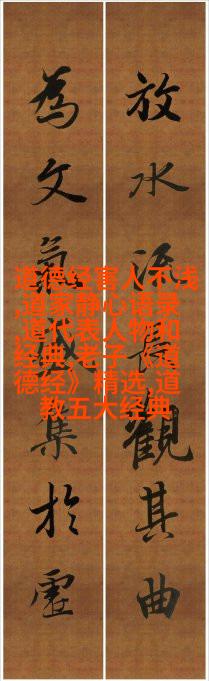 放水觀其曲
為文氣集於虛
道德经害人不浅
,道家静心语录
,道代表人物和
经典,老子《道
德经》精选,道
教五大经典